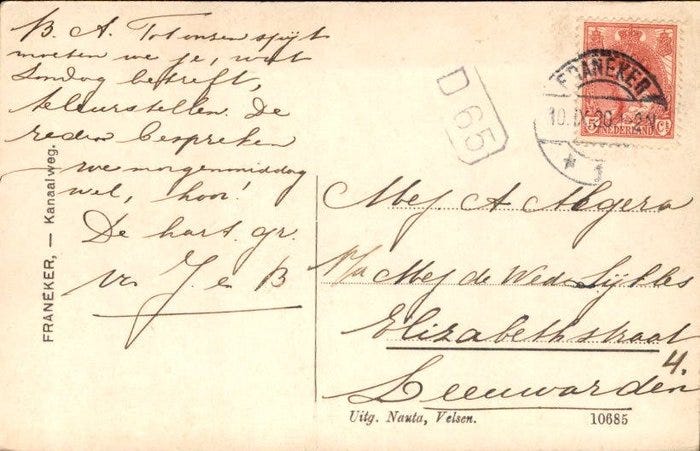 B. A. Tot onzen spijt
moeten we je, wat
Zondag betreft,
teleurstellen. De
reden bespreken
we morgenmiddag
wel, hoor!
De hart. gr.
van J. en B
FRANEKER, — Kanaalweg.
D 65
FRANEKER
10.IX.20.1-2N
5 Ct
NEDERLAND
Mej A Algera
p/a Mej de Wed Sijtles
Elizabethstraat
4.
Leeuwarden
Uitg. Nauta, Velsen. 10685